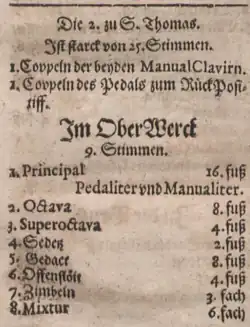 Die 2. zu S. Thomas.
Ist starck von 25. Stimmen.
1. Coppeln der beyden Manual Clavirn.
1. Coppeln des Pedals zum RückPosi-
tiff.
Im OberWerck
9. Stimmen.
1. Principal 16. fuß
Pedaliter vnd Manualiter.
2. Octava 8. fuß
3. Superoctava 4. fuß
4. Sedetz 2. fuß
5. Gedact 8. fuß
6. Offenflöit 4. fuß
7. Zimbeln 3. fach
8. Mixtur 6. fach